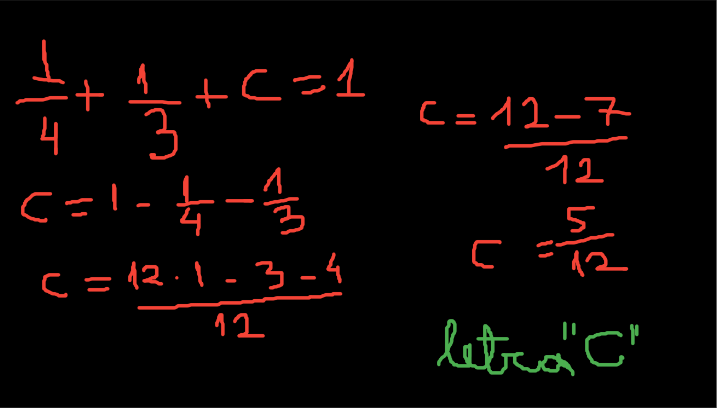 1/4 + 1/3 + C = 1
C = 1 - 1/4 - 1/3
C = (12 · 1 - 3 - 4)/12
C = (12 - 7)/12
C = 5/12
letra "C"